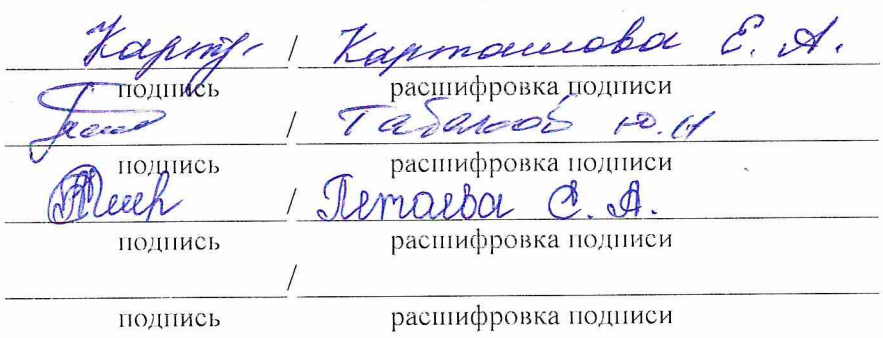 Карт / Карташова Е. А.
подпись расшифровка подписи
/ Табаков Ю.Н
подпись расшифровка подписи
/ Петаева С. А.
подпись расшифровка подписи
/
подпись расшифровка подписи